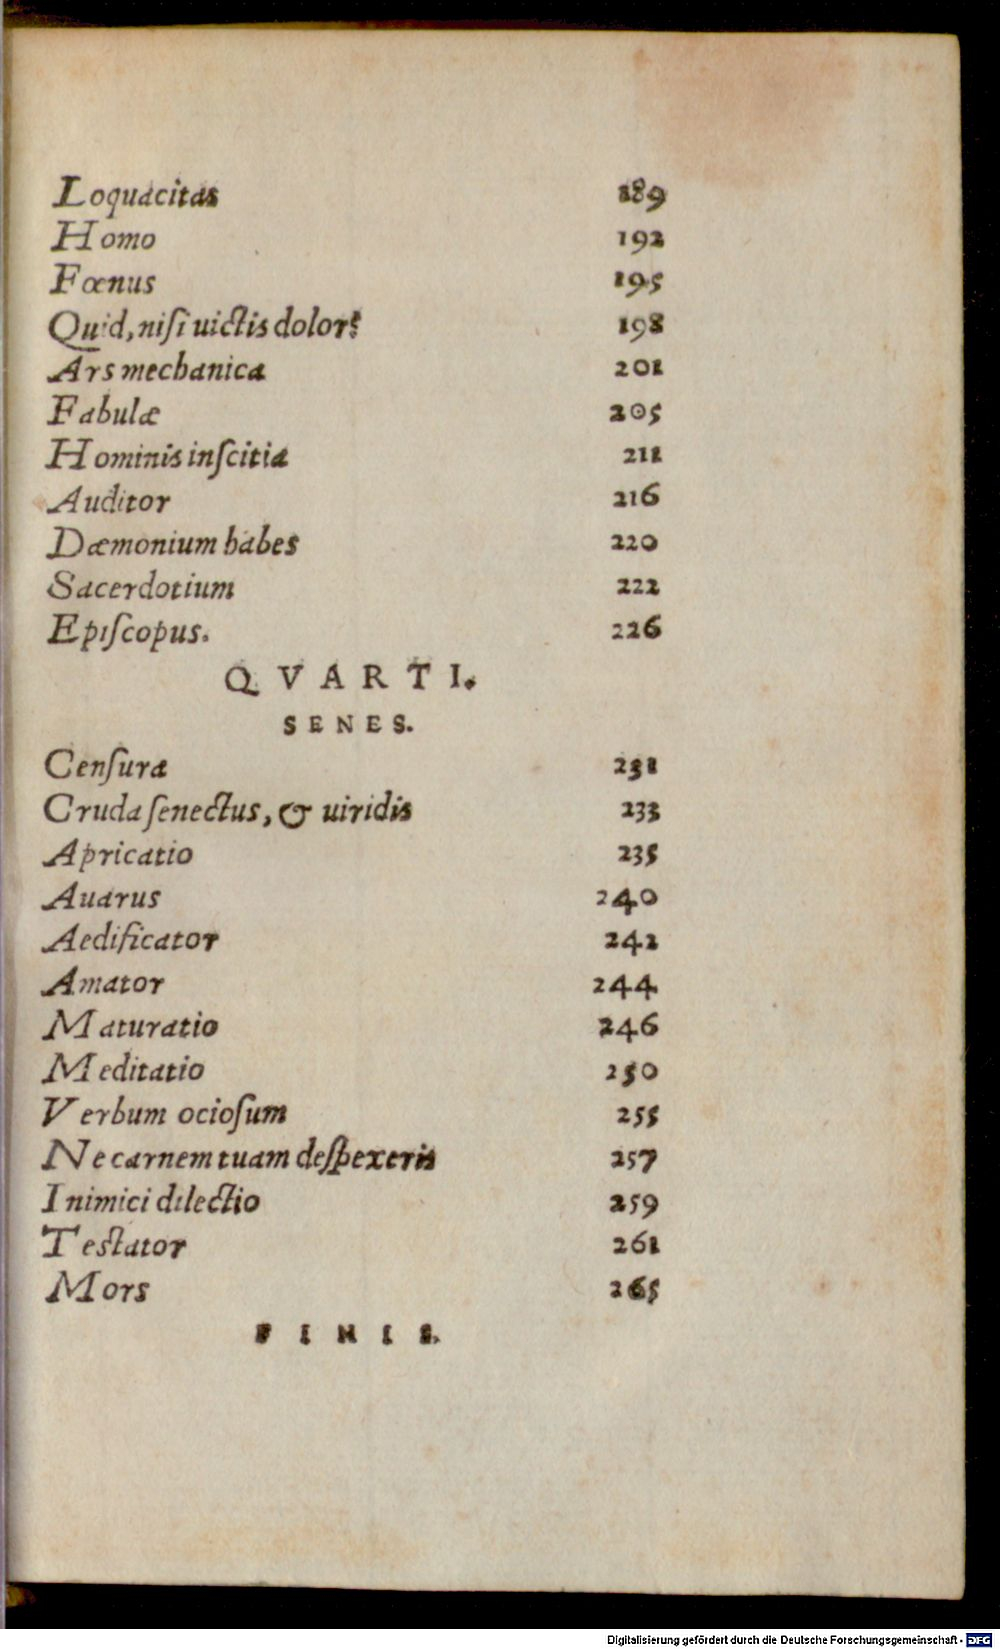 Loquacitas 189
Homo 192
Fœnus 195
Quid, niſi uictis dolor? 198
Ars mechanica 201
Fabulæ 205
Hominis inſcitia 211
Auditor 216
Dæmonium habes 220
Sacerdotium 222
Epiſcopus. 226
QVARTI.
SENES.
Cenſura 231
Cruda ſenectus, & uiridis 233
Apricatio 235
Auarus 240
Aedificator 242
Amator 244
Maturatio 246
Meditatio 250
Verbum ocioſum 255
Ne carnem tuam deſpexeris 257
Inimici dilectio 259
Testator 261
Mors 265
FINIS.
Digitalisierung gefördert durch die Deutsche Forschungsgemeinschaft - DFG